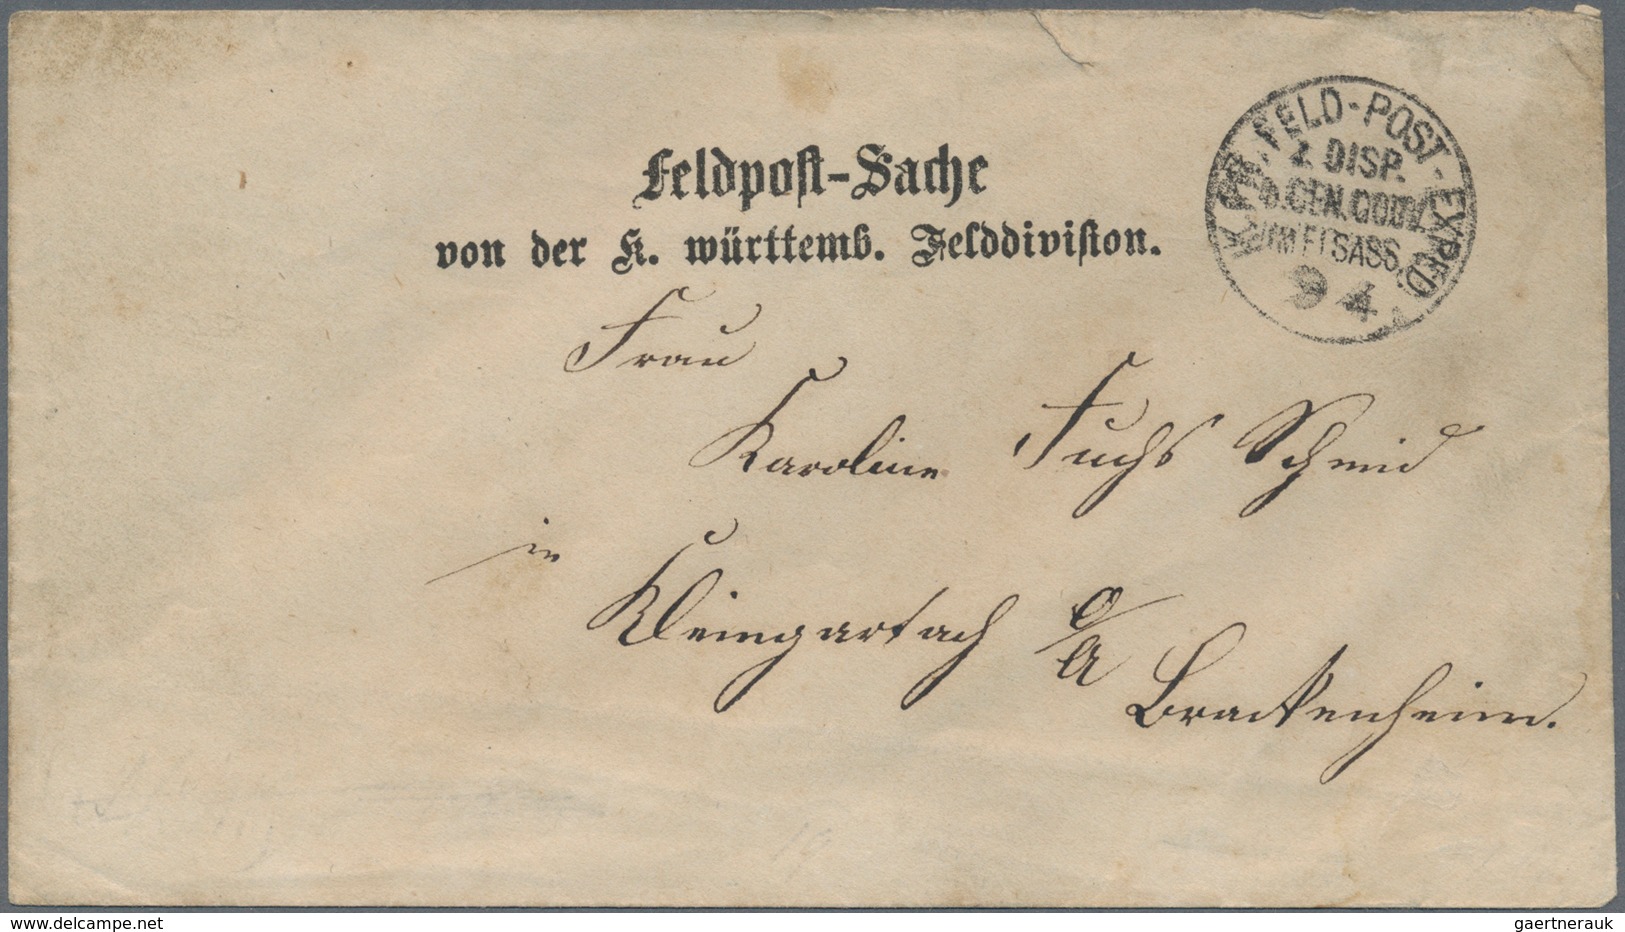 Feldpost-Sache
von der K. württemb. Felddivision.
K. PR. FELD-POST-EXPED.
z. DISP.
D. GEN. GOUV.
IM ELSASS.
9 4
Frau
Karoline Fuchs Schmid
in
Kleingartach O/A
Brackenheim.
www.delcampe.net
gaertnerauk